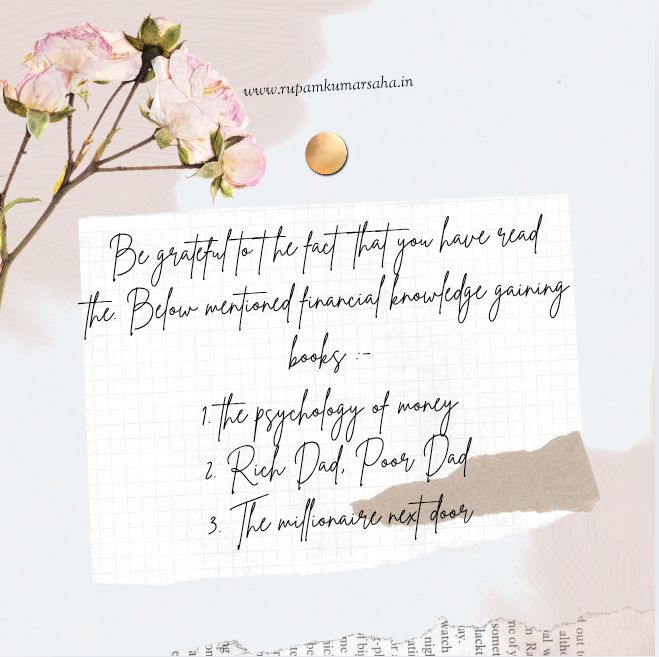 www.rupamkumarsaha.in
Be grateful to the fact that you have read
the. Below mentioned financial knowledge gaining
books :-
1. the psychology of money
2. Rich Dad, Poor Dad
3. The millionaire next door